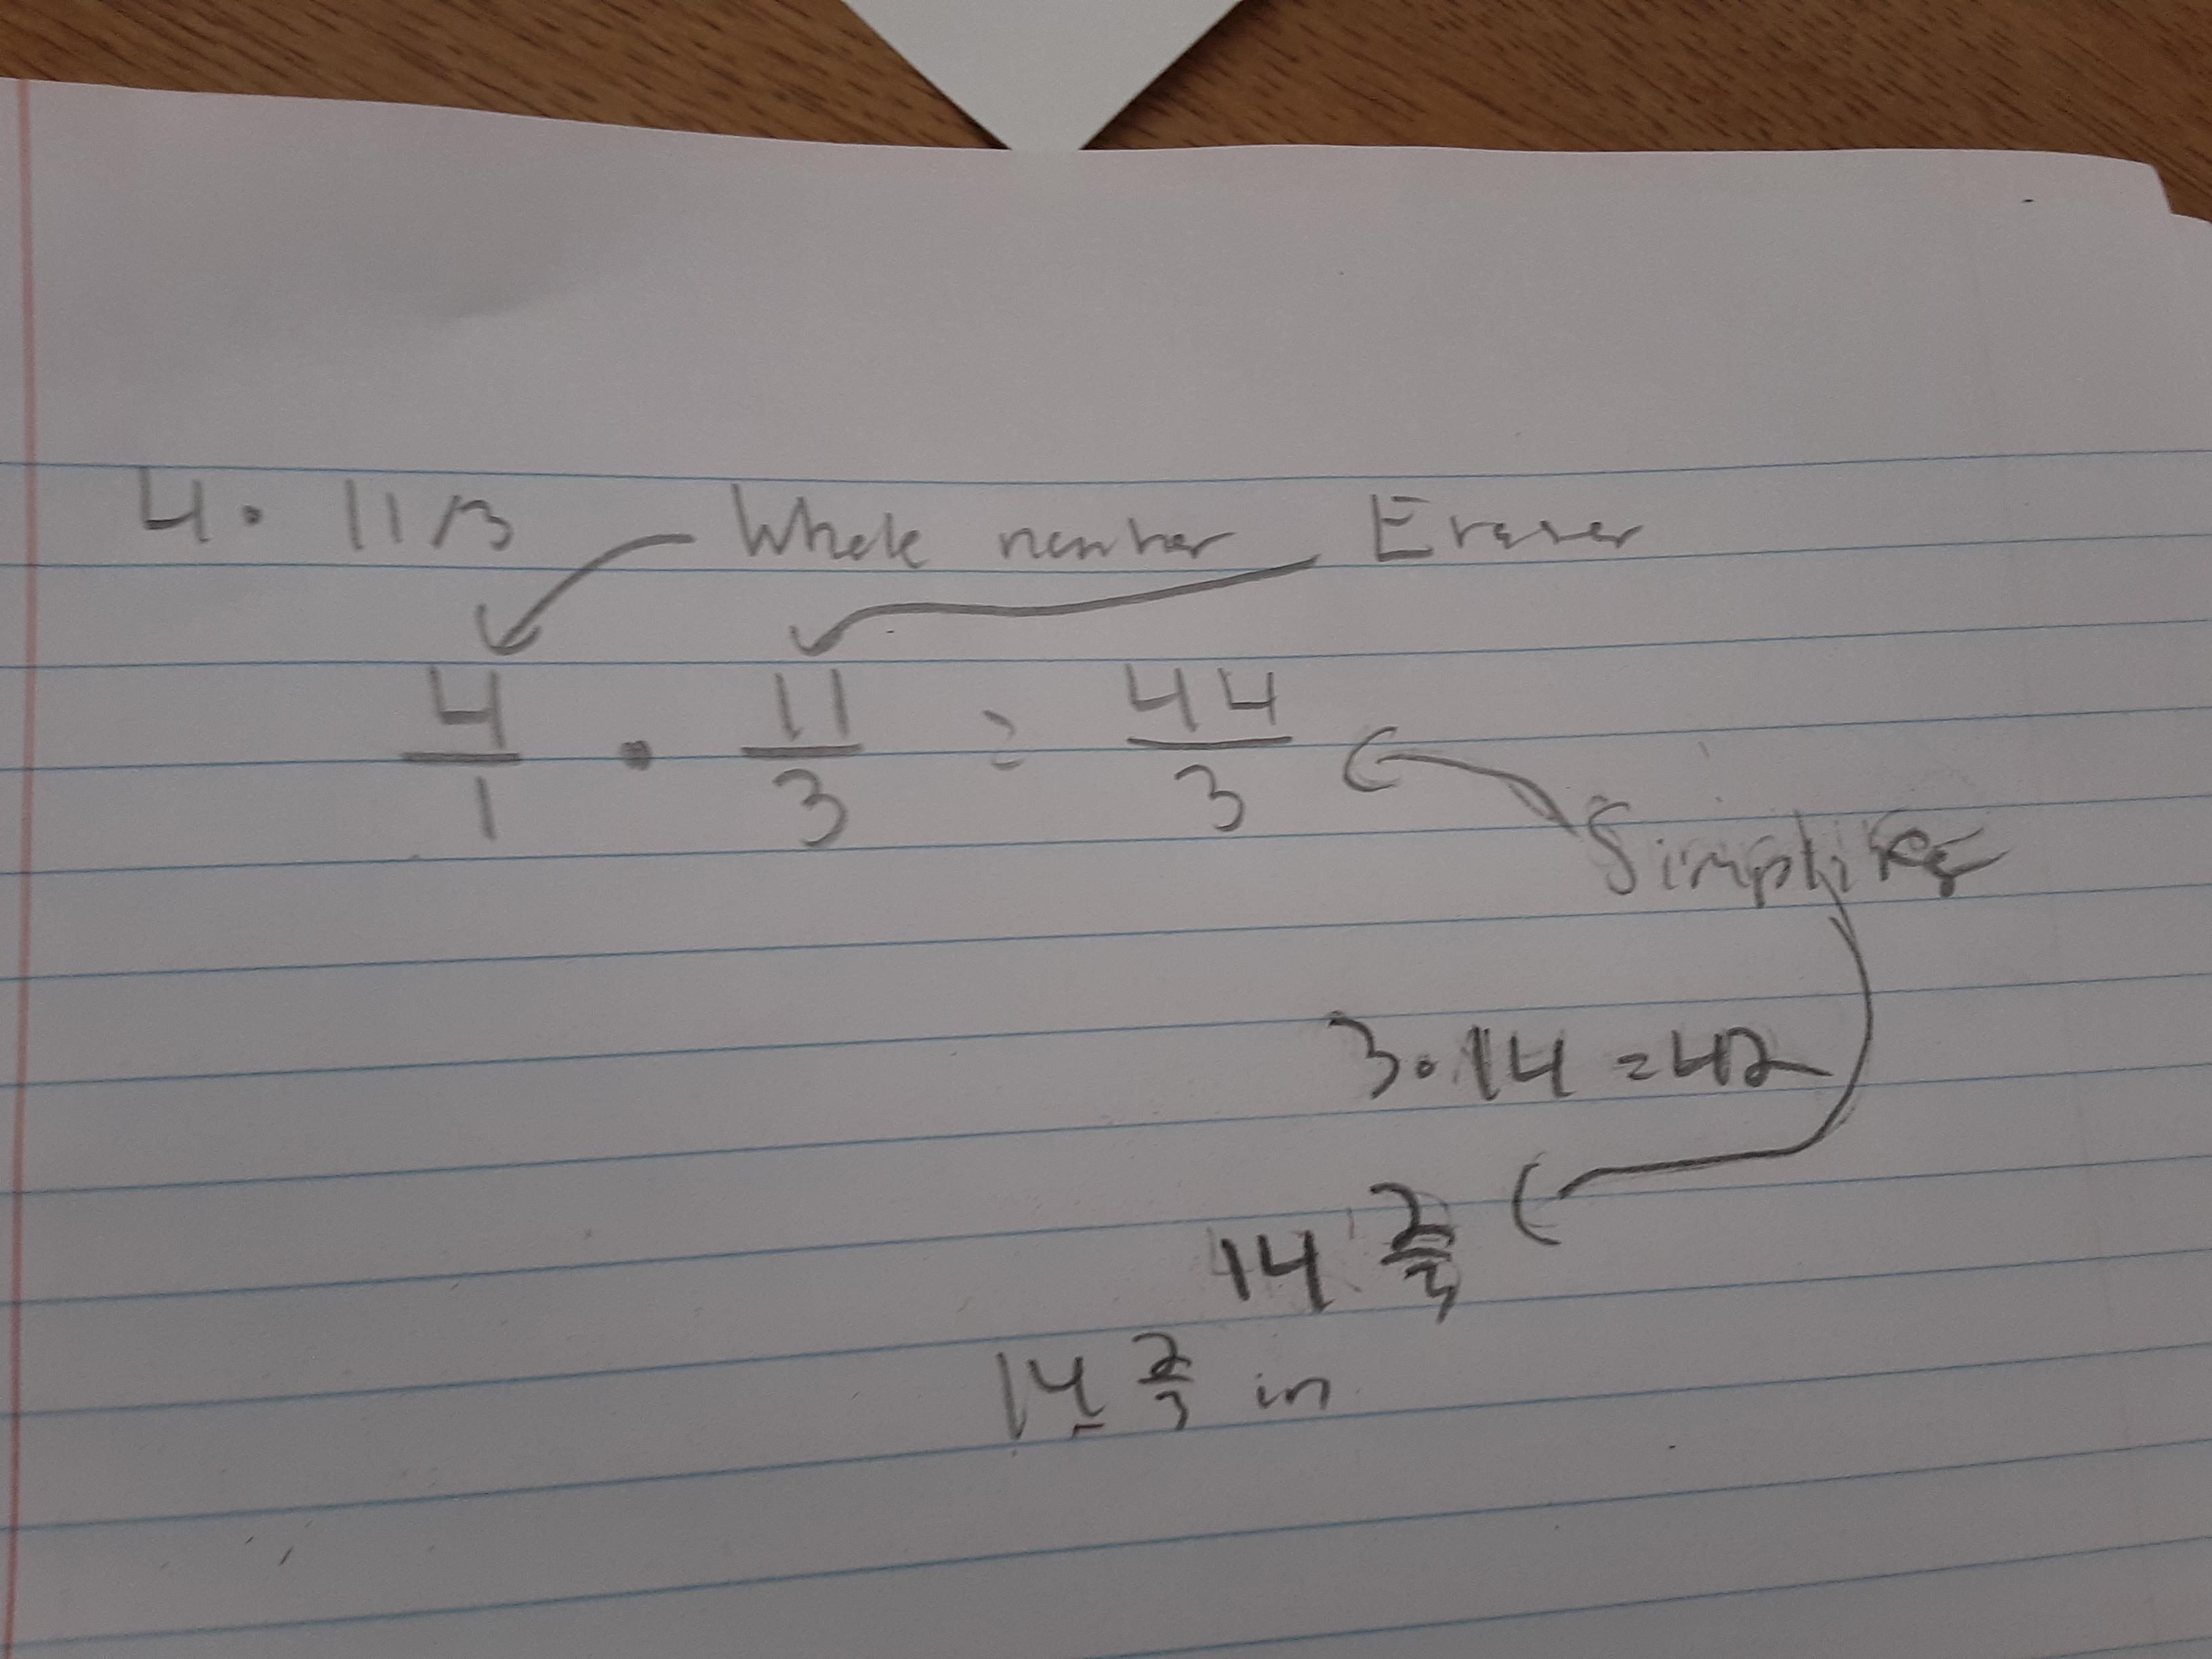 4 · 11/3 Whole number Eraser
4/1 · 11/3 = 44/3
3 · 14 = 42
14 2/3
14 2/3 in